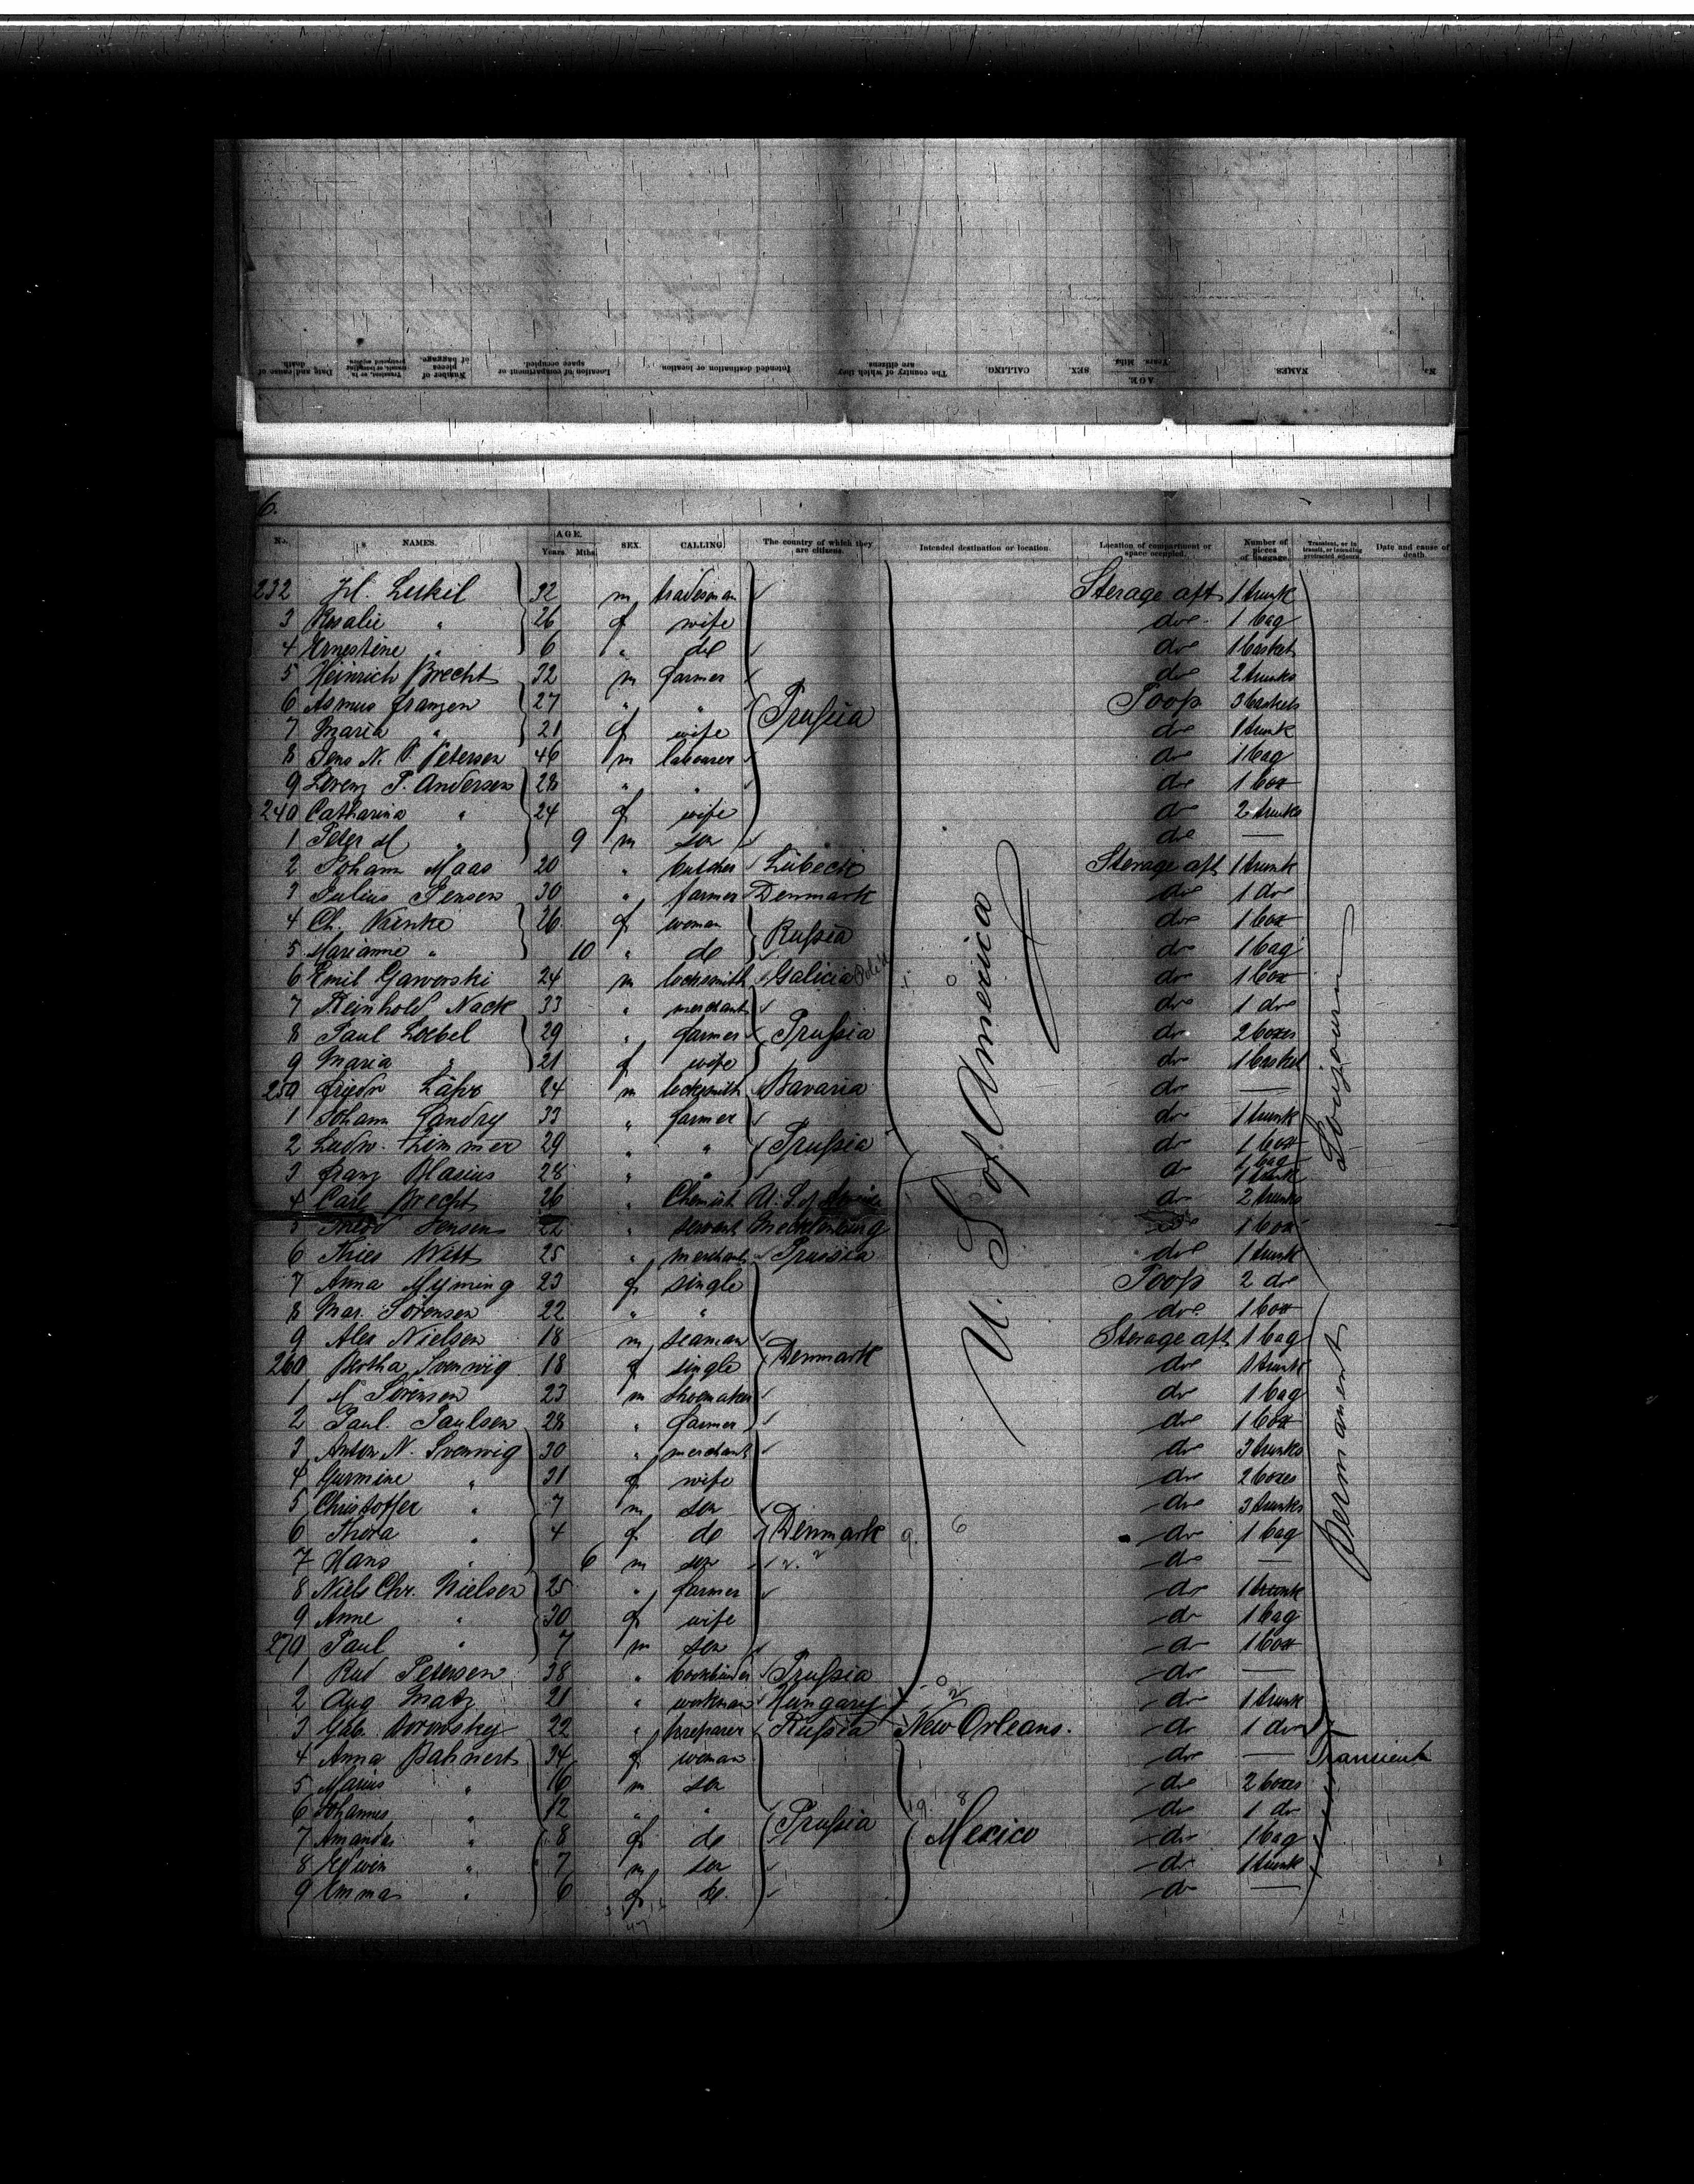 6.
No. NAMES. AGE. Years. Mths. SEX. CALLING. The country of which they are citizens. Intended destination or location. Location of compartment or space occupied. Number of pieces of baggage. Transient, or in transit, or intending protracted sojourn. Date and cause of death.
232 32 m tradesman Sterage aft 1 trunk
3 Rosalie " 26 f wife do 1 bag
4 Ernestine " 6 " do do 1 basket
5 Heinrich Brecht 32 m farmer do 2 trunks
6 Asmus Franzen 27 " " Prussia Poop 3 baskets
7 Maria " 21 f wife do 1 trunk
8 Jens N. P. Petersen 46 m labourer do 1 bag
9 Lorenz P. Andersen 28 " " do 1 box
240 Catharina " 24 f wife do 2 trunks
1 Peter M " 9 m son do —
2 Johann Maas 20 " butcher Lübeck Sterage aft 1 trunk
3 Julius Jensen 30 " farmer Denmark do 1 do
4 Ch. 26 f woman Russia do 1 box
5 Marianne " 10 " do do 1 bag
6 Emil Gaworski 24 m locksmith Galicia do 1 box
7 Reinhold Nack 33 " merchant do 1 do
8 Paul Loebel 29 " farmer Prussia do 2 boxes
9 Maria " 21 f wife do 1 basket
250 Friedr 24 m locksmith Bavaria do —
1 Johann Landry 33 " farmer do 1 trunk
2 Ludw. Zimmer 29 " " Prussia do 1 box
3 Franz Blasius 28 " " do 1 bag 1 trunk
4 Carl Brecht 26 " Chemist U. S. of America do 2 trunks
5 Jensen 22 " servant Mecklenburg do 1 box
6 Thies Witt 25 " merchant Prussia do 1 trunk
7 Anna 23 f single Poop 2 do
8 Mar. Sörensen 22 " " do 1 box
9 Alex Nielsen 18 m seaman Sterage aft 1 bag
260 Bertha Svenwig 18 f single Denmark do 1 trunk
1 Sörensen 23 m shoemaker do 1 bag
2 Paul. Paulsen 28 " farmer do 1 box
3 Anton N. Svenwig 30 " merchant do 3 trunks
4 " 31 f wife do 2 boxes
5 Christoffer " 7 m son do 3 trunks
6 Thora " 4 f do Denmark do 1 bag
7 Hans " 6 m son do —
8 Niels Chr. Nielsen 25 " farmer do 1 trunk
9 Anne " 30 f wife do 1 bag
270 Paul " 7 m son do 1 box
1 Rud Petersen 38 " bookbinder Prussia do —
2 Aug. Matz 21 " workman Hungary do 1 trunk
3 22 " preparer Russia New Orleans. do 1 do
4 Anna Bahnert 34 f woman do — Transient
5 Marius " 16 m son do 2 boxes
6 Johannes " 12 " " Prussia do 1 do
7 Amanda " 8 f do Mexico do 1 bag
8 Edwin " 7 m son do 1 trunk
9 Emma " 6 f do do —
U. S. of America
Permanent